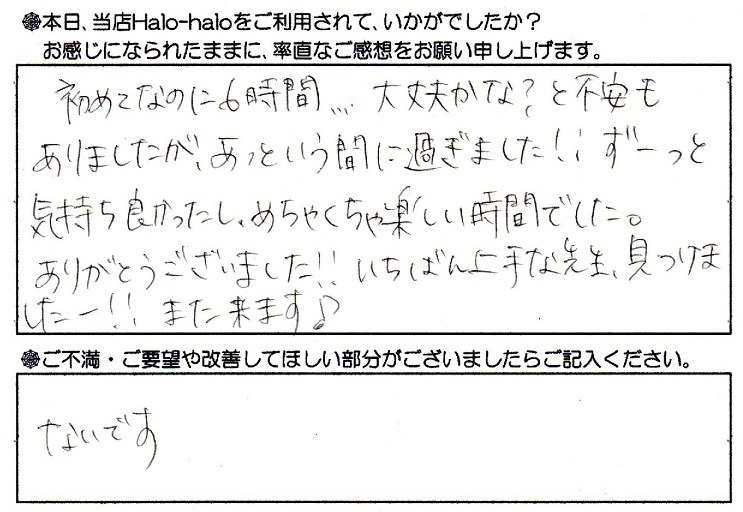 ❁本日、当店Halo-haloをご利用されて、いかがでしたか？
お感じになられたままに、率直なご感想をお願い申し上げます。
初めてなのに6時間… 大丈夫かな？と不安も
ありましたが、あっという間に過ぎました！！ずーっと
気持ち良かったし、めちゃくちゃ楽しい時間でした。
ありがとうございました!! いちばん上手な先生、見つけま
したー!! また来ます♪
❁ご不満・ご要望や改善してほしい部分がございましたらご記入ください。
ないです